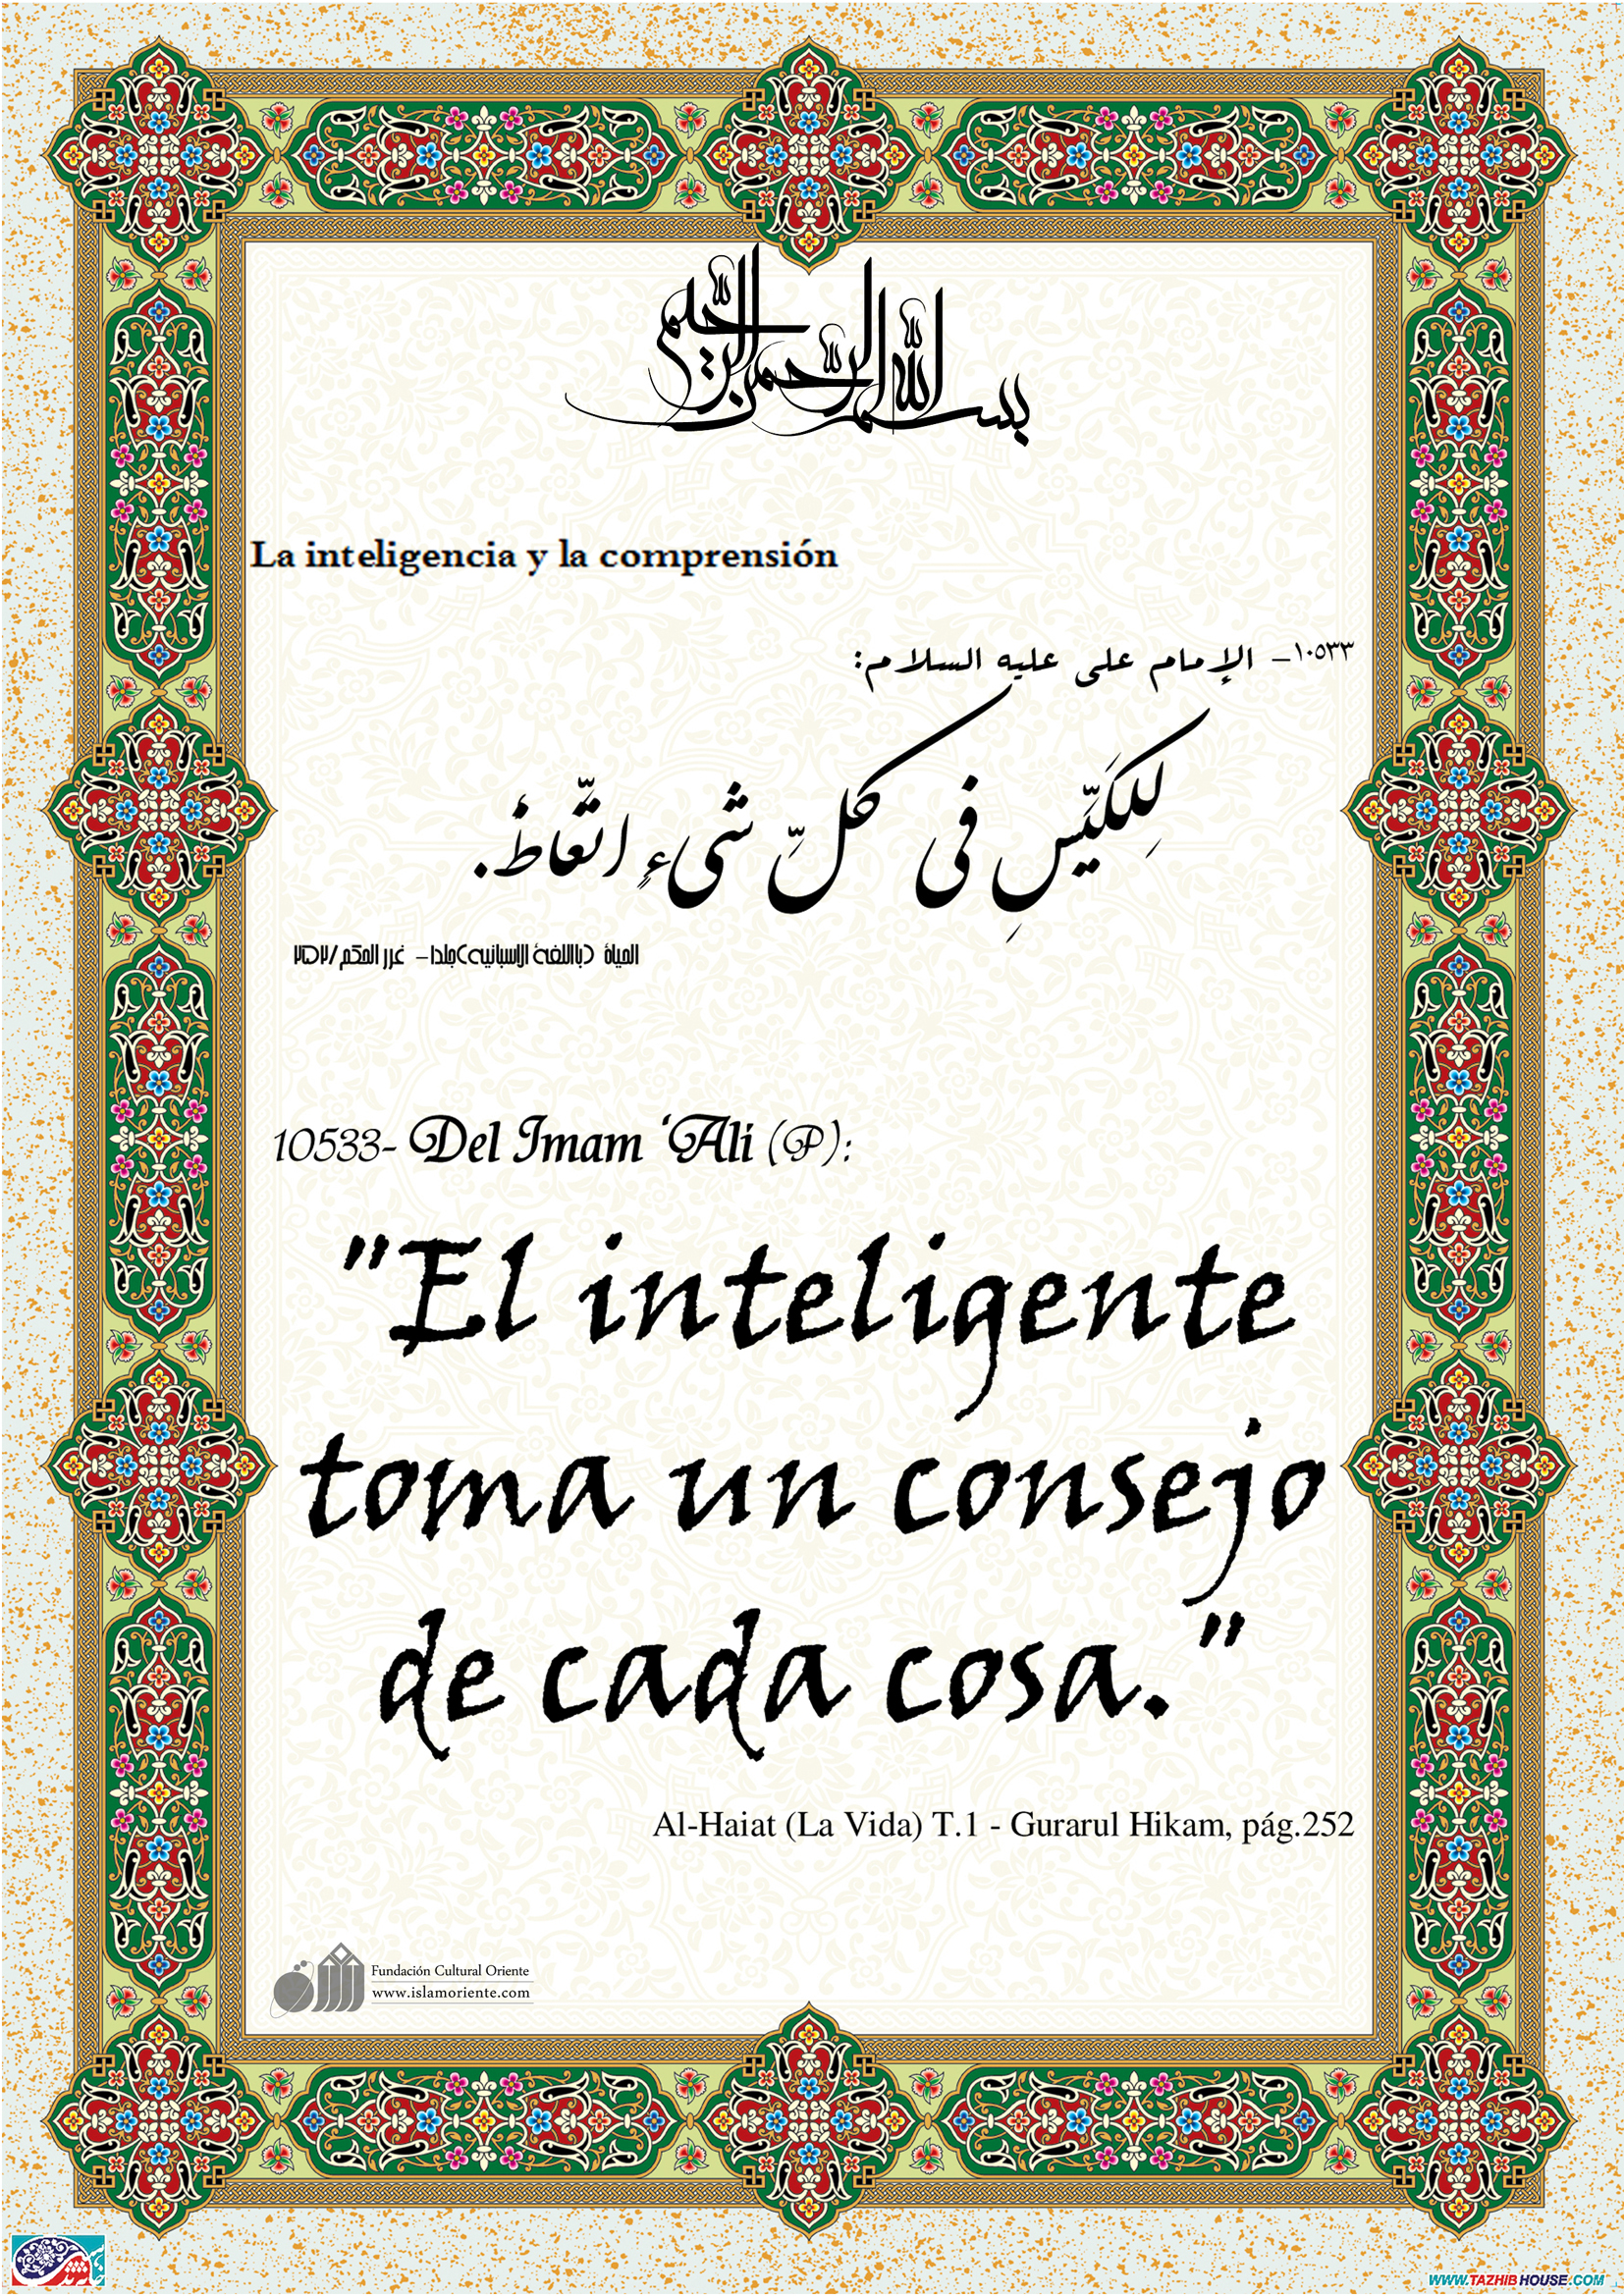 بسم الله الرحمن الرحیم
La inteligencia y la comprensión
١٠٥٣٣– الإمام علی علیه السلام:
لِلکَیِّسِ فی کلِّ شیءٍ اتّعاظٌ.
الحیاة (باللغة الاسبانیه)جلد۱– غرر الحکم/۲۵۲
10533- Del Imam ‘Ali (P):
"El inteligente
toma un consejo
de cada cosa."
Al-Haiat (La Vida) T.1 - Gurarul Hikam, pág.252
Fundación Cultural Oriente
www.islamoriente.com
WWW.TAZHIBHOUSE.COM